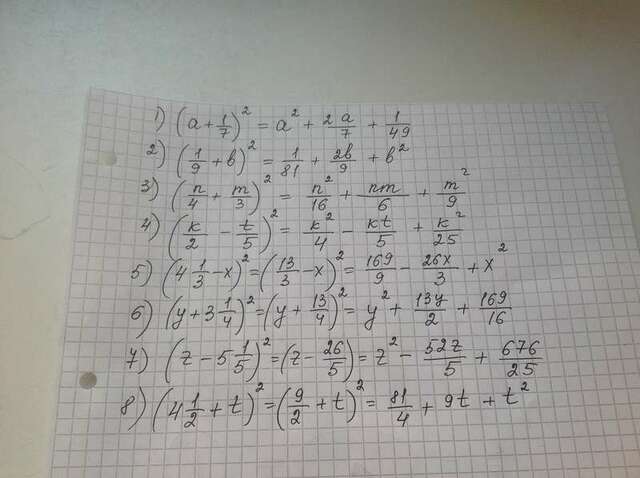 1) (a + 1/7)² = a² + 2a/7 + 1/49
2) (1/9 + b)² = 1/81 + 2b/9 + b²
3) (n/4 + m/3)² = n²/16 + nm/6 + m²/9
4) (k/2 - t/5)² = k²/4 - kt/5 + k²/25
5) (4 1/3 - x)² = (13/3 - x)² = 169/9 - 26x/3 + x²
6) (y + 3 1/4)² = (y + 13/4)² = y² + 13y/2 + 169/16
7) (z - 5 1/5)² = (z - 26/5) = z² - 52z/5 + 676/25
8) (4 1/2 + t)² = (9/2 + t)² = 81/4 + 9t + t²